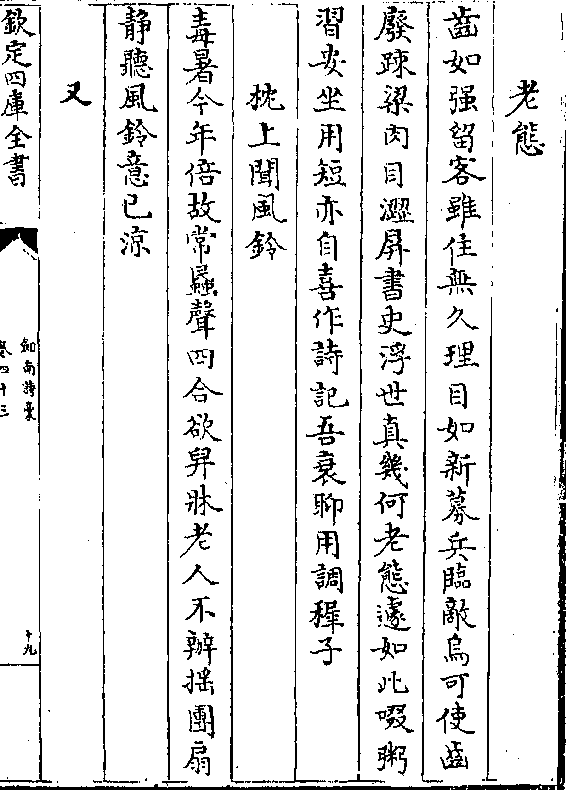 老態
齒如强留客雖住無久理目如新募兵臨敵烏可使齒
廢踈粱肉目澀屏書史浮世真幾何老態遽如此啜粥
習安坐用短亦自喜作詩記吾衰聊用調穉子
枕上聞風鈴
毒暑今年倍故常蟁聲四合欲舁牀老人不辦揺團扇
静聽風鈴意已涼
又
欽定四庫全書
劒南詩藁
卷四十三
十九